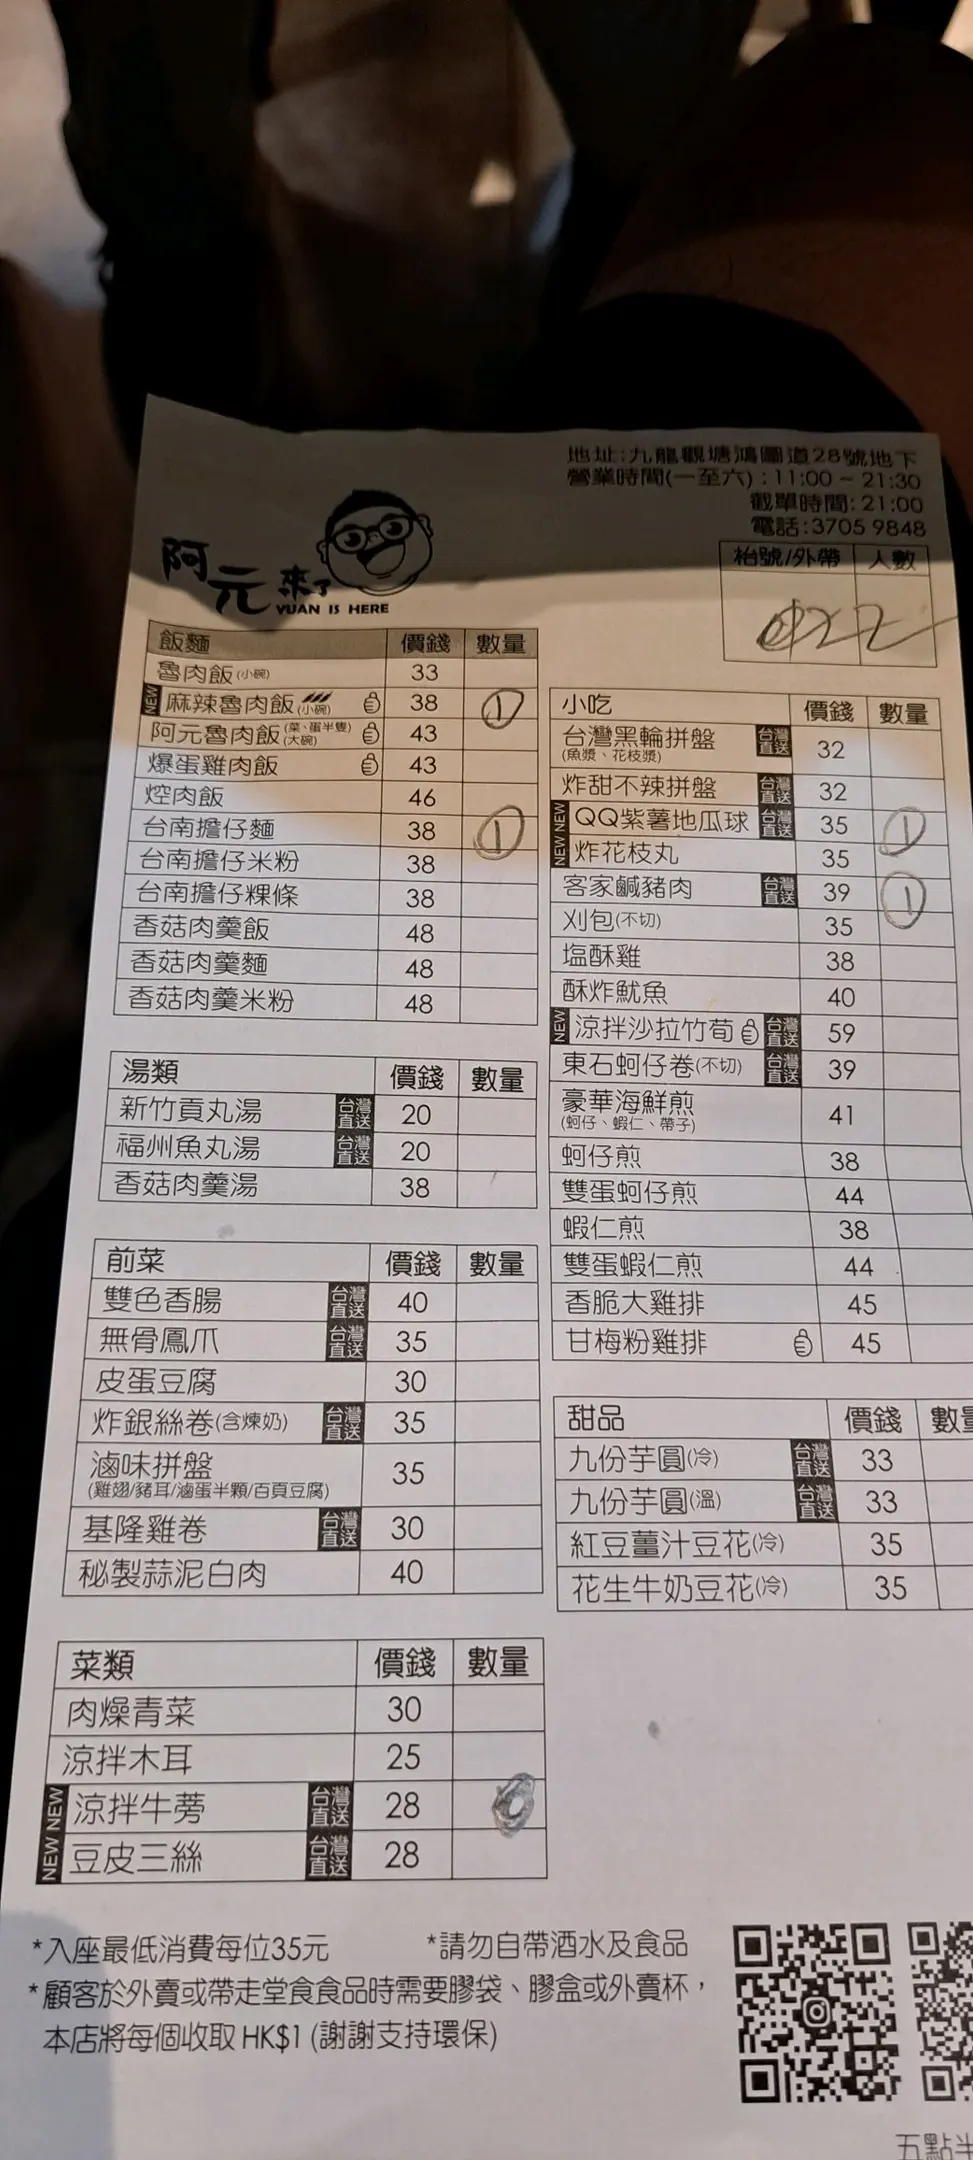 地址:九龍觀塘鴻圖道28號地下
營業時間(一至六):11:00 ~ 21:30
截單時間:21:00
電話:3705 9848
阿元來了
YUAN IS HERE
枱號/外帶 人數
2
飯麵 價錢 數量
魯肉飯(小碗) 33
NEW 麻辣魯肉飯(小碗) 38 1
阿元魯肉飯(菜、蛋半隻)(大碗) 43
爆蛋雞肉飯 43
焢肉飯 46
台南擔仔麵 38 1
台南擔仔米粉 38
台南擔仔粿條 38
香菇肉羹飯 48
香菇肉羹麵 48
香菇肉羹米粉 48
湯類 價錢 數量
新竹貢丸湯 台灣直送 20
福州魚丸湯 台灣直送 20
香菇肉羹湯 38
前菜 價錢 數量
雙色香腸 台灣直送 40
無骨鳳爪 台灣直送 35
皮蛋豆腐 30
炸銀絲卷(含煉奶) 台灣直送 35
滷味拼盤 35
(雞翅/豬耳/滷蛋半顆/百頁豆腐)
基隆雞卷 台灣直送 30
秘製蒜泥白肉 40
菜類 價錢 數量
肉燥青菜 30
涼拌木耳 25
NEW 涼拌牛蒡 台灣直送 28
NEW 豆皮三絲 台灣直送 28
小吃 價錢 數量
台灣黑輪拼盤 台灣直送 32
(魚漿、花枝漿)
炸甜不辣拼盤 台灣直送 32
NEW QQ紫薯地瓜球 台灣直送 35 1
NEW 炸花枝丸 35
客家鹹豬肉 台灣直送 39 1
刈包(不切) 35
塩酥雞 38
酥炸魷魚 40
NEW 涼拌沙拉竹荀 台灣直送 59
東石蚵仔卷(不切) 台灣直送 39
豪華海鮮煎 41
(蚵仔、蝦仁、帶子)
蚵仔煎 38
雙蛋蚵仔煎 44
蝦仁煎 38
雙蛋蝦仁煎 44
香脆大雞排 45
甘梅粉雞排 45
甜品 價錢 數量
九份芋圓(冷) 台灣直送 33
九份芋圓(溫) 台灣直送 33
紅豆薑汁豆花(冷) 35
花生牛奶豆花(冷) 35
*入座最低消費每位35元 *請勿自帶酒水及食品
*顧客於外賣或帶走堂食食品時需要膠袋、膠盒或外賣杯，
本店將每個收取 HK$1 (謝謝支持環保)
五點半